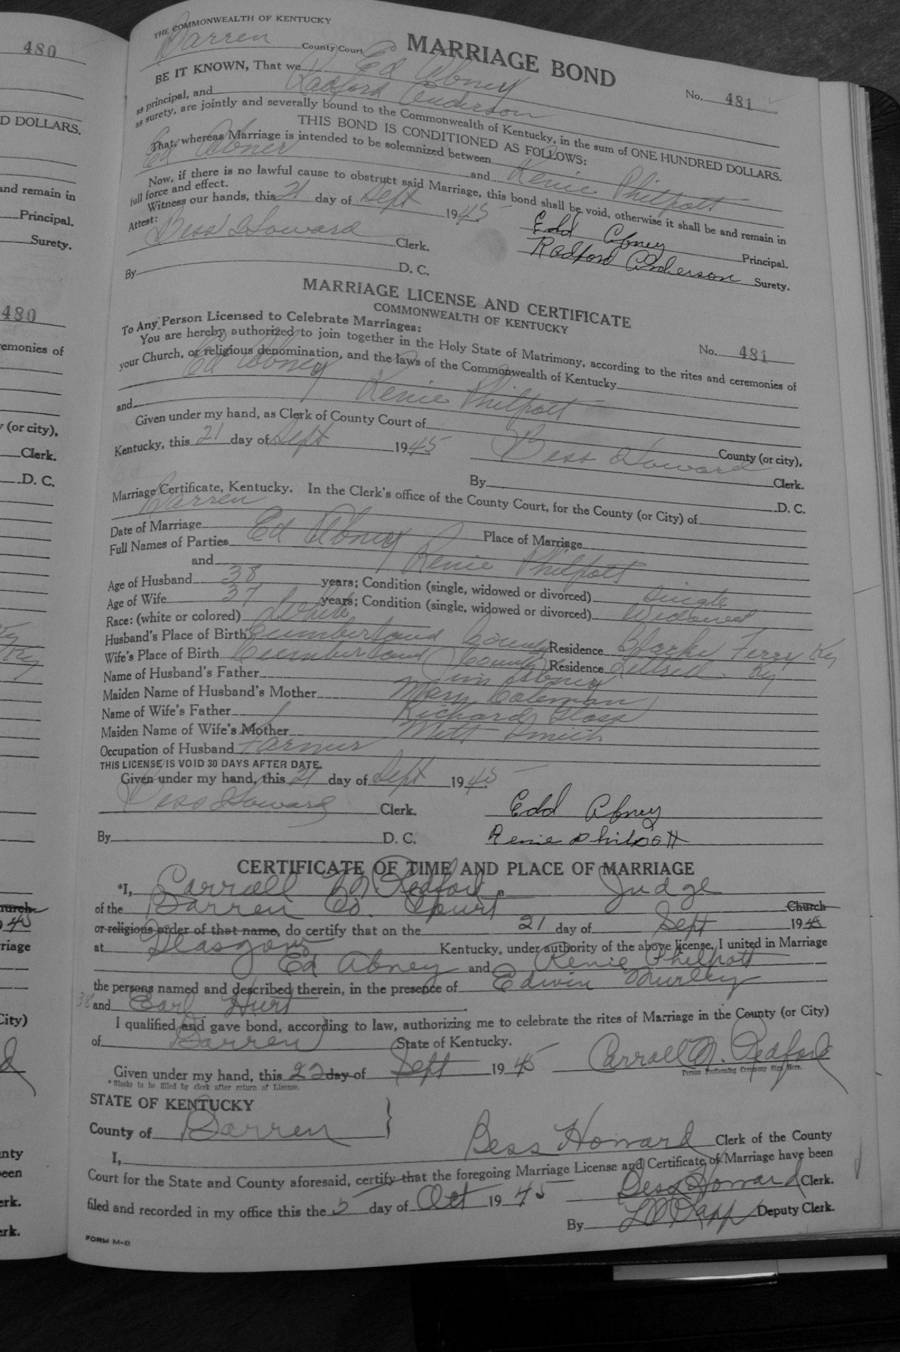 480
D DOLLARS.
and remain in
Principal.
Surety.
480
emonies of
(or city),
Clerk.
D. C.
Church
45
riage
City)
nty
een
erk.
rk.
THE COMMONWEALTH OF KENTUCKY
Barren County Court
MARRIAGE BOND
No. 481
BE IT KNOWN, That we Ed Abney
as principal, and Radford Anderson
as surety, are jointly and severally bound to the Commonwealth of Kentucky, in the sum of ONE HUNDRED DOLLARS.
THIS BOND IS CONDITIONED AS FOLLOWS:
That, whereas Marriage is intended to be solemnized between
Ed Abney and Renie Philpott
Now, if there is no lawful cause to obstruct said Marriage, this bond shall be void, otherwise it shall be and remain in
full force and effect.
Witness our hands, this 21 day of Sept 1945
Attest: Edd Abney Principal.
Bess Howard Clerk. Radford Anderson Surety.
By D. C.
MARRIAGE LICENSE AND CERTIFICATE
COMMONWEALTH OF KENTUCKY
No. 481
To Any Person Licensed to Celebrate Marriages:
You are hereby authorized to join together in the Holy State of Matrimony, according to the rites and ceremonies of
your Church, or religious denomination, and the laws of the Commonwealth of Kentucky
Ed Abney
and Renie Philpott
Given under my hand, as Clerk of County Court of County (or city),
Kentucky, this 21 day of Sept 1945 Bess Howard Clerk.
By D. C.
Marriage Certificate, Kentucky. In the Clerk's office of the County Court, for the County (or City) of
Barren
Date of Marriage Place of Marriage
Full Names of Parties Ed Abney
and Renie Philpott
Age of Husband 38 years; Condition (single, widowed or divorced) Single
Age of Wife 37 years; Condition (single, widowed or divorced) Widowed
Race: (white or colored) White
Husband's Place of Birth Cumberland County Residence Ferry Ky
Wife's Place of Birth Cumberland County Residence Ky
Name of Husband's Father Jim Abney
Maiden Name of Husband's Mother Mary Coleman
Name of Wife's Father Richard
Maiden Name of Wife's Mother Mitt Smith
Occupation of Husband Farmer
THIS LICENSE IS VOID 30 DAYS AFTER DATE.
Given under my hand, this 21 day of Sept 1945
Bess Howard Clerk. Edd Abney
By D. C. Renie Philpott
CERTIFICATE OF TIME AND PLACE OF MARRIAGE
*I, Carroll M Redford, Judge
of the Barren Co. Court Church
or religious order of that name, do certify that on the 21 day of Sept 1945
at Glasgow Kentucky, under authority of the above license, I united in Marriage
Ed Abney and Renie Philpott
the persons named and described therein, in the presence of Edwin Nurley
and Earl Hurt
I qualified and gave bond, according to law, authorizing me to celebrate the rites of Marriage in the County (or City)
of Barren State of Kentucky.
Given under my hand, this 22 day of Sept 1945 Carroll M. Redford
* Blanks to be filled by clerk after return of License. Person Performing Ceremony Sign Here.
STATE OF KENTUCKY
County of Barren
I, Bess Howard Clerk of the County
Court for the State and County aforesaid, certify that the foregoing Marriage License and Certificate of Marriage have been
filed and recorded in my office this the 3 day of Oct 1945 Bess Howard Clerk.
By Deputy Clerk.
FORM M-8